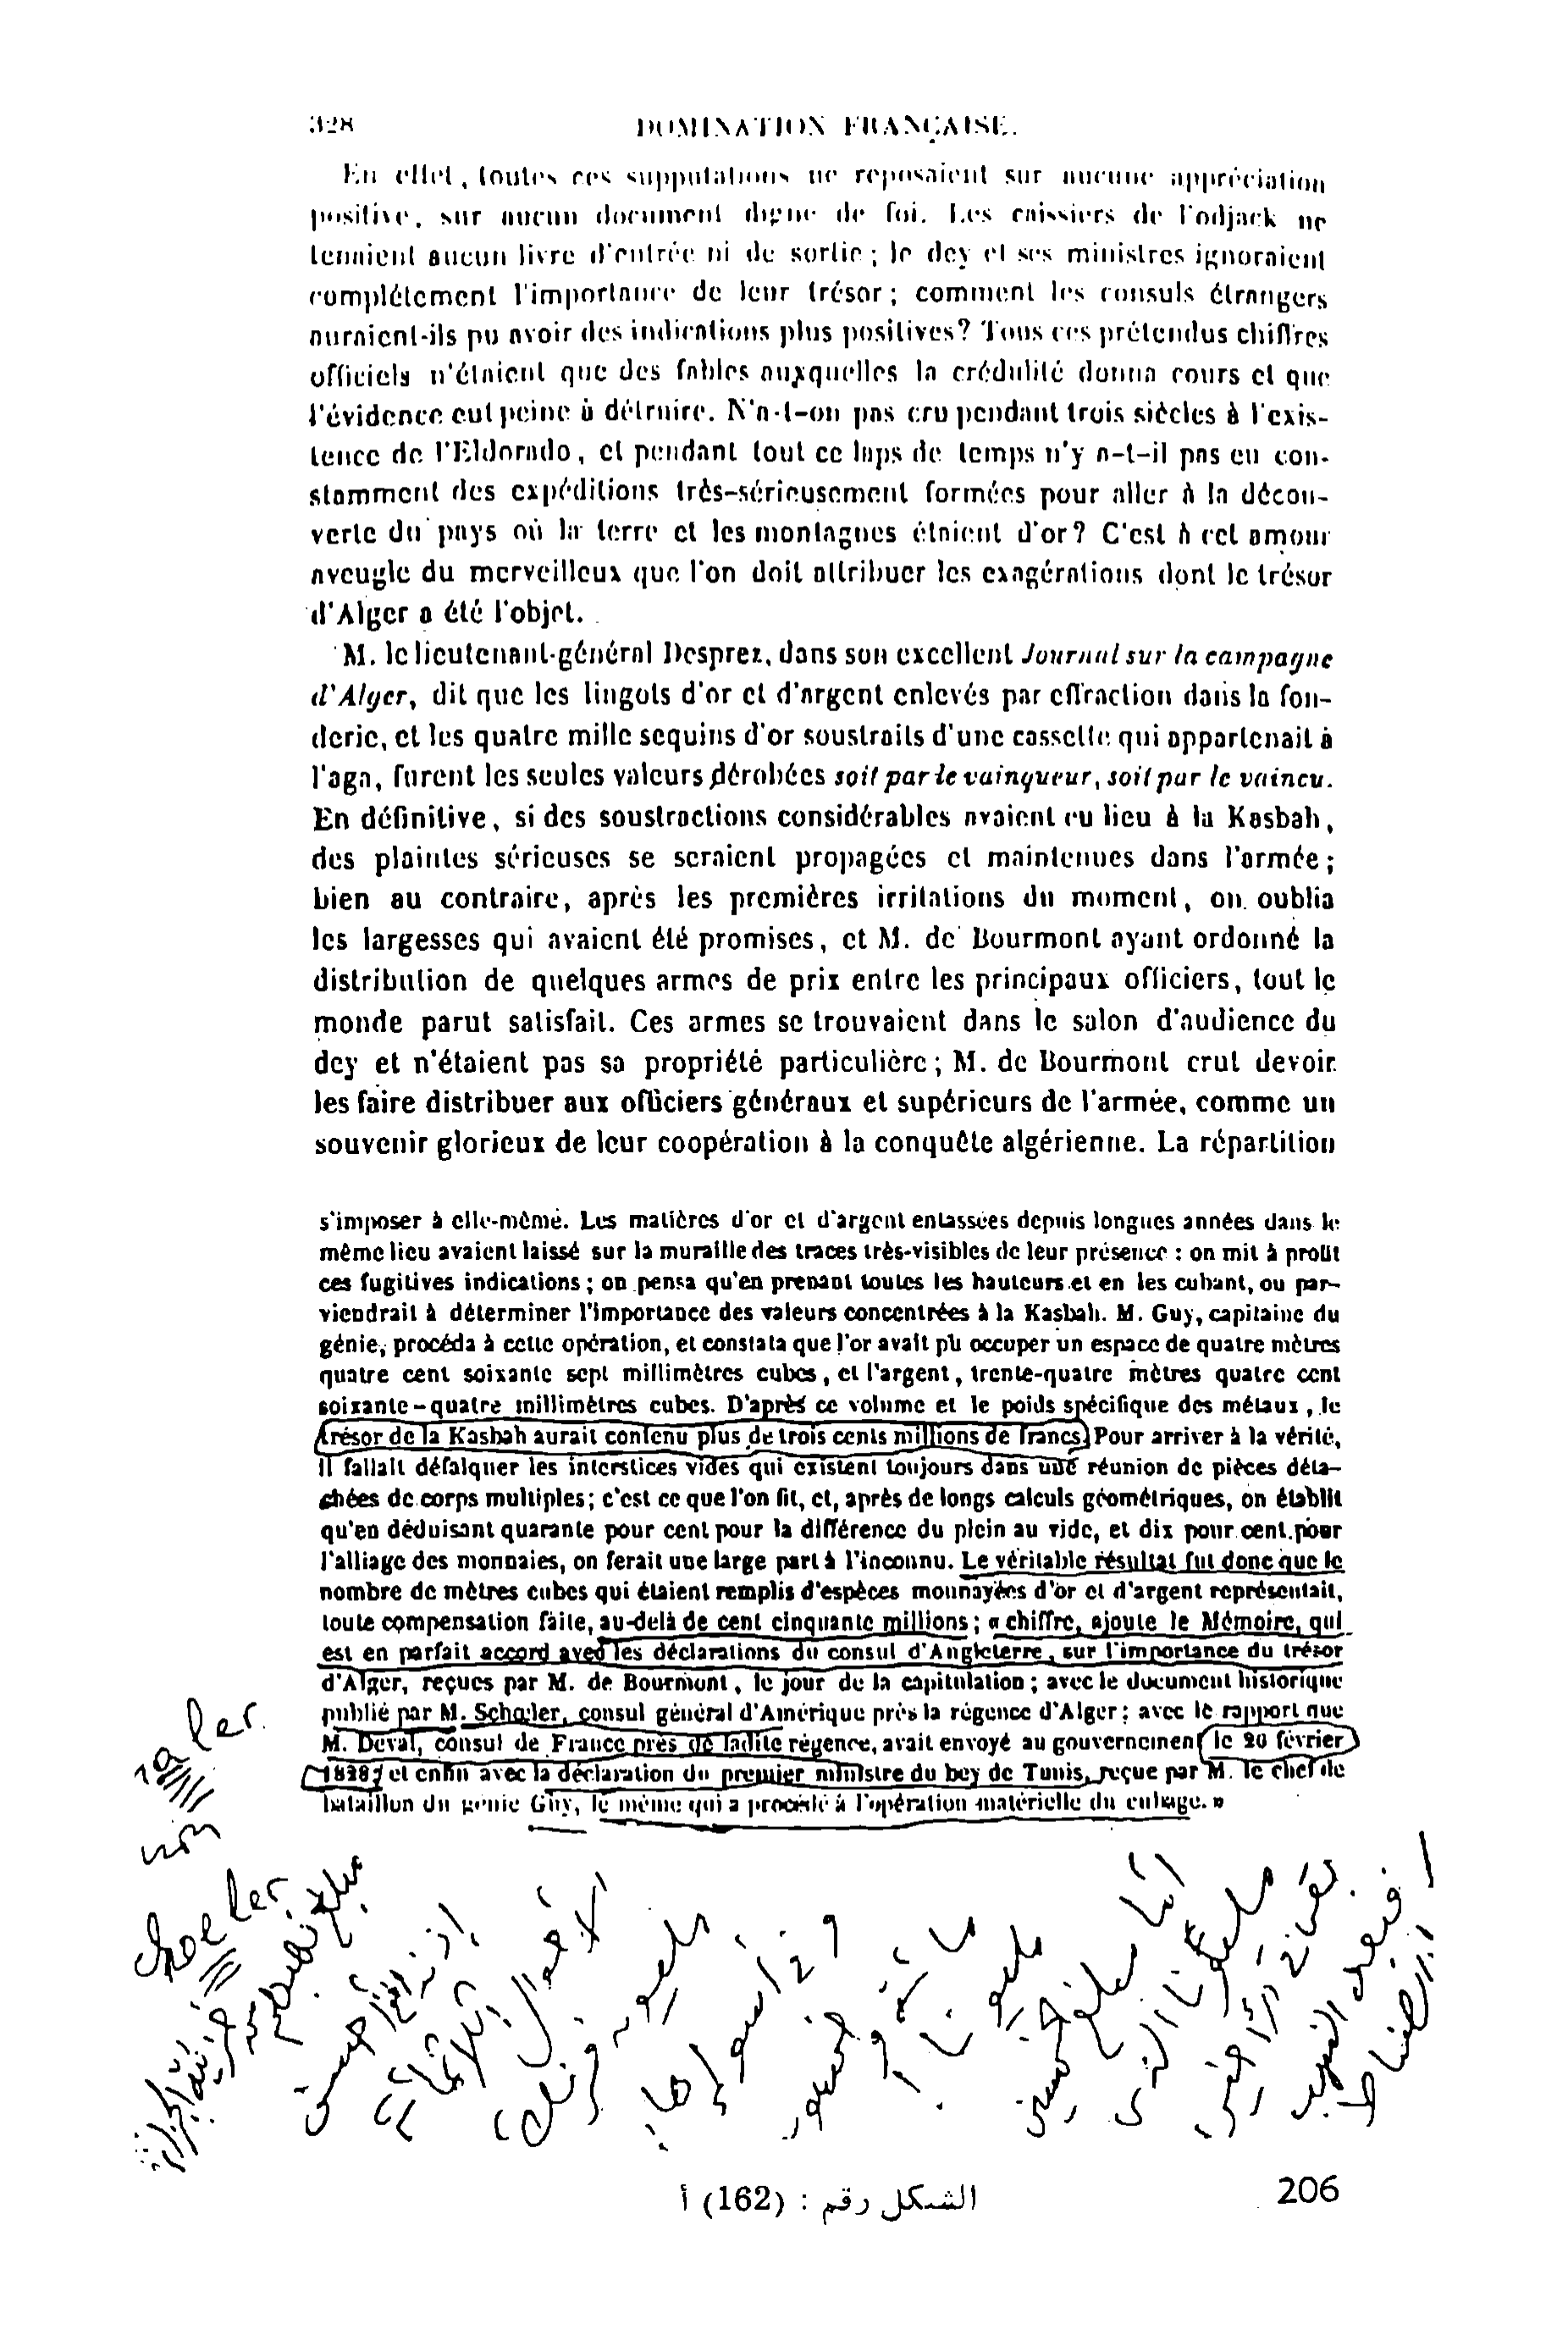 328 DOMINATION FRANÇAISE.
En effet, toutes ces supputations ne reposaient sur aucune appréciation
positive, sur aucun document digne de foi. Les caissiers de l'odjack ne
tenaient aucun livre d'entrée ni de sortie ; le dey et ses ministres ignoraient
complétement l'importance de leur trésor ; comment les consuls étrangers
auraient-ils pu avoir des indications plus positives? Tous ces prétendus chiffres
officiels n'étaient que des fables auxquelles la crédulité donna cours et que
l'évidence eut peine à détruire. N'a-t-on pas cru pendant trois siècles à l'exis-
tence de l'Eldorado, et pendant tout ce laps de temps n'y a-t-il pas eu con-
stamment des expéditions très-sérieusement formées pour aller à la décou-
verte du pays où la terre et les montagnes étaient d'or? C'est à cet amour
aveugle du merveilleux que l'on doit attribuer les exagérations dont le trésor
d'Alger a été l'objet.
M. le lieutenant-général Desprez, dans son excellent Journal sur la campagne
d'Alger, dit que les lingots d'or et d'argent enlevés par effraction dans la fon-
derie, et les quatre mille sequins d'or soustraits d'une cassette qui appartenait à
l'aga, furent les seules valeurs dérobées soit par le vainqueur, soit par le vaincu.
En définitive, si des soustractions considérables avaient eu lieu à la Kasbah,
des plaintes sérieuses se seraient propagées et maintenues dans l'armée ;
bien au contraire, après les premières irritations du moment, on oublia
les largesses qui avaient été promises, et M. de Bourmont ayant ordonné la
distribution de quelques armes de prix entre les principaux officiers, tout le
monde parut satisfait. Ces armes se trouvaient dans le salon d'audience du
dey et n'étaient pas sa propriété particulière ; M. de Bourmont crut devoir
les faire distribuer aux officiers généraux et supérieurs de l'armée, comme un
souvenir glorieux de leur coopération à la conquête algérienne. La répartition
s'imposer à elle-même. Les matières d'or et d'argent entassées depuis longues années dans le
même lieu avaient laissé sur la muraille des traces très-visibles de leur présence : on mit à profit
ces fugitives indications ; on pensa qu'en prenant toutes les hauteurs et en les cubant, on par-
viendrait à déterminer l'importance des valeurs concentrées à la Kasbah. M. Guy, capitaine du
génie, procéda à cette opération, et constata que l'or avait pu occuper un espace de quatre mètres
quatre cent soixante sept millimètres cubes, et l'argent, trente-quatre mètres quatre cent
soixante-quatre millimètres cubes. D'après ce volume et le poids spécifique des métaux, le
trésor de la Kasbah aurait contenu plus de trois cents millions de francs. Pour arriver à la vérité,
il fallait défalquer les interstices vides qui existent toujours dans une réunion de pièces déta-
chées de corps multiples ; c'est ce que l'on fit, et, après de longs calculs géométriques, on établit
qu'en déduisant quarante pour cent pour la différence du plein au vide, et dix pour cent pour
l'alliage des monnaies, on ferait une large part à l'inconnu. Le véritable résultat fut donc que le
nombre de mètres cubes qui étaient remplis d'espèces monnayées d'or et d'argent représentait,
toute compensation faite, au-delà de cent cinquante millions ; « chiffre, ajoute le Mémoire, qui
est en parfait accord avec les déclarations du consul d'Angleterre, sur l'importance du trésor
d'Alger, reçues par M. de Bourmont, le jour de la capitulation ; avec le document historique
publié par M. Schaler, consul général d'Amérique près la régence d'Alger ; avec le rapport que
M. Deval, consul de France près de ladite régence, avait envoyé au gouvernement le 20 février
1828 ; et enfin avec la déclaration du premier ministre du bey de Tunis, reçue par M. le chef de
bataillon du génie Guy, le même qui a procédé à l'opération matérielle du cubage. »
الشكل رقم : (162) أ
206